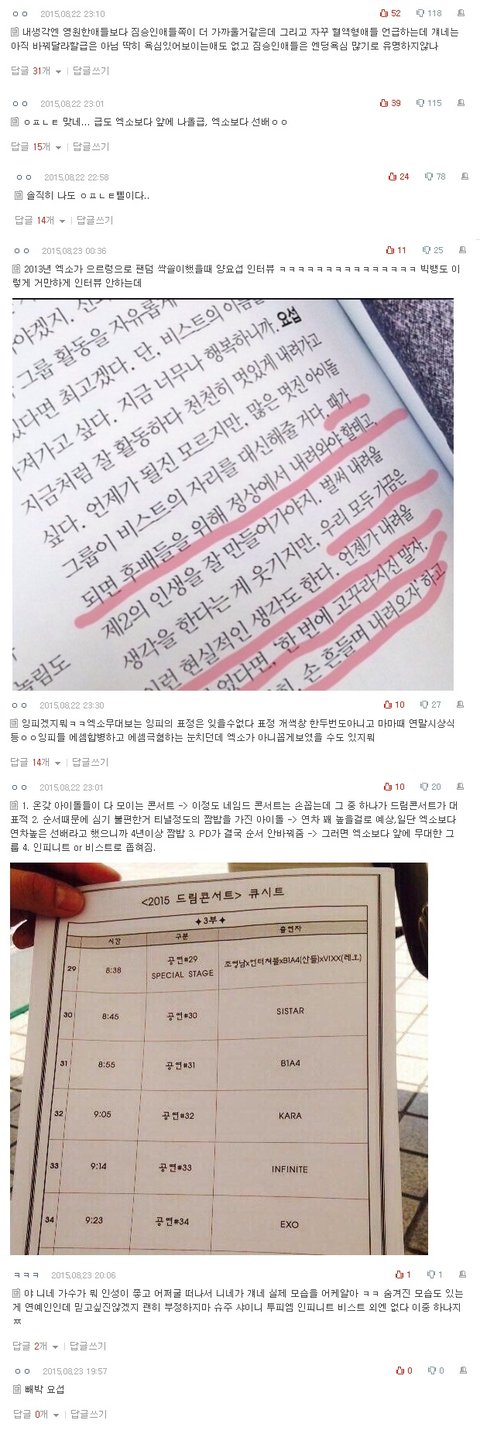 ㅇㅇ 2015.08.22 23:10 52 118
내생각엔 영원한애들보다 짐승인애들쪽이 더 가까울거같은데 그리고 자꾸 혈액형애들 언급하는데 걔네는
아직 바꿔달라할급은 아님 딱히 욕심있어보이는애도 없고 짐승인애들은 엔딩욕심 많기로 유명하지않나
답글 31개 | 답글쓰기
ㅇㅇ 2015.08.22 23:01 39 115
ㅇㅍㄴㅌ 맞네... 급도 엑소보다 앞에 나올급, 엑소보다 선배ㅇㅇ
답글 15개 | 답글쓰기
ㅇㅇ 2015.08.22 22:58 24 78
솔직히 나도 ㅇㅍㄴㅌ삘이다..
답글 14개 | 답글쓰기
ㅇㅇ 2015.08.23 00:36 11 25
2013년 엑소가 으르렁으로 팬덤 싹쓸이했을때 양요섭 인터뷰 ㅋㅋㅋㅋㅋㅋㅋㅋㅋㅋㅋㅋㅋㅋㅋ 빅뱅도 이
렇게 거만하게 인터뷰 안하는데
야겠지.
그룹 활동을 자유롭게
있다면 최고겠다. 단, 비스트의 이름을
가져가고 싶다. 지금 너무나 행복하니까. 요섭
지금처럼 잘 활동하다 천천히 멋있게 내려가고
싶다. 언제가 될진 모르지만, 많은 멋진 아이돌
그룹이 비스트의 자리를 대신해줄 거다. 때가
되면 후배들을 위해 정상에서 내려와야 할테고,
제2의 인생을 잘 만들어가야지. 벌써 내려올
생각을 한다는 게 웃기지만, 우리 모두 가끔은
이런 현실적인 생각도 한다. 언젠가 내려올
었다면, '한 번에 고꾸라지진 말자.
손 흔들며 내려오자' 하고
놀림도
ㅇㅇ 2015.08.22 23:30 10 27
잉피겠지뭐ㅋㅋ엑소무대보는 잉피의 표정은 잊을수없다 표정 개썩창 한두번도아니고 마마때 연말시상식
등ㅇㅇ잉피들 에셈합병하고 에셈극혐하는 눈치던데 엑소가 아니꼽게보였을 수도 있지뭐
답글 14개 | 답글쓰기
ㅇㅇ 2015.08.22 23:01 10 20
1. 온갖 아이돌들이 다 모이는 콘서트 -> 이정도 네임드 콘서트는 손꼽는데 그 중 하나가 드림콘서트가 대
표적 2. 순서때문에 심기 불편한거 티낼정도의 짬밥을 가진 아이돌 -> 연차 꽤 높을걸로 예상,일단 엑소보다
연차높은 선배라고 했으니까 4년이상 짬밥 3. PD가 결국 순서 안바꿔줌 -> 그러면 엑소보다 앞에 무대한 그
룹 4. 인피니트 or 비스트로 좁혀짐.
<2015 드림콘서트> 큐시트
✦3부✦
시간 구분 출연자
29 8:38 공연#29 SPECIAL STAGE 조영남x언터쳐블xB1A4(산들)xVIXX(레오)
30 8:45 공연#30 SISTAR
31 8:55 공연#31 B1A4
32 9:05 공연#32 KARA
33 9:14 공연#33 INFINITE
34 9:23 공연#34 EXO
ㅋㅋㅋ 2015.08.23 20:06 1 1
야 니네 가수가 뭐 인성이 좋고 어쩌굴 떠나서 니네가 걔네 실제 모습을 어케알아 ㅋㅋ 숨겨진 모습도 있는
게 연예인인데 믿고싶진않겠지 괜히 부정하지마 슈주 샤이니 투피엠 인피니트 비스트 외엔 없다 이중 하나지
ㅉ
답글 2개 | 답글쓰기
ㅇㅇ 2015.08.23 19:57 0 0
빼박 요섭
답글 0개 | 답글쓰기